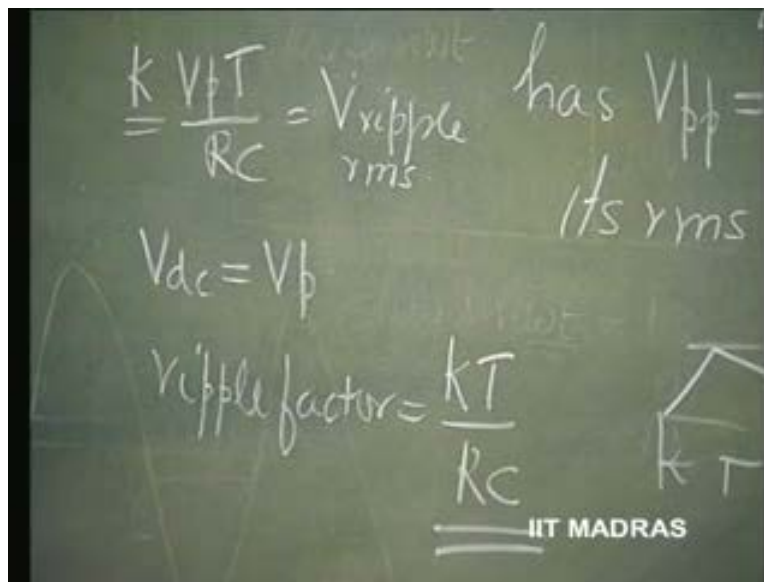 K VpT / RC = Vripple rms.
has Vpp =
its rms
Vdc = Vp
ripple factor = KT / RC
T
IIT MADRAS